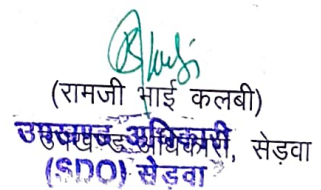 (रामजी भाई कलबी)
उपखण्ड अधिकारी, सेड़वा
उपखण्ड अधिकारी
(SDO) सेड़वा